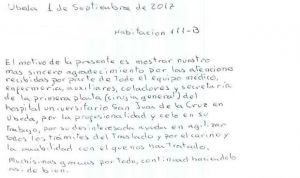 Ubeda 1 de Septiembre de 2017
Habitacion 111-B
El motivo de la presente es mostrar nuestro
mas sincero agradecimiento por las atenciones
recibidas por parte de todo el equipo médico,
enfermería, auxiliares, celadores y secretaria
de la primera planta (cirugia general) del
hospital universitario San Juan de la Cruz en
Ubeda, por la profesionalidad y celo en su
trabajo, por su desinteresada ayuda en agilizar
todos los trámites del traslado y por el cariño y
la amabilidad con el que nos han tratado.
Muchisimas gracias por todo, continuad haciendolo
asi de bien.